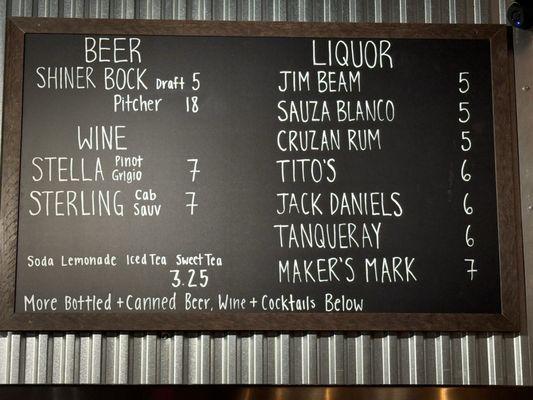 BEER
SHINER BOCK Draft 5
Pitcher 18
WINE
STELLA Pinot Grigio 7
STERLING Cab Sauv 7
Soda Lemonade Iced Tea Sweet Tea
3.25
LIQUOR
JIM BEAM 5
SAUZA BLANCO 5
CRUZAN RUM 5
TITO'S 6
JACK DANIELS 6
TANQUERAY 6
MAKER'S MARK 7
More Bottled + Canned Beer, Wine + Cocktails Below